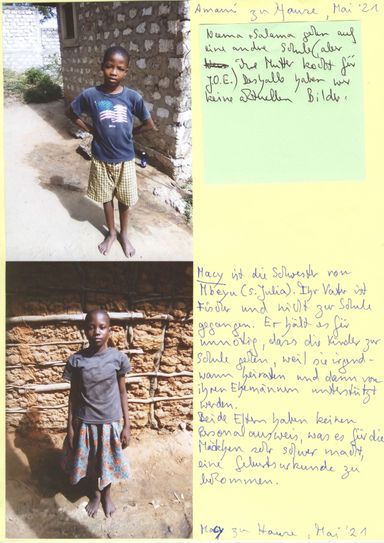 Amani zu Hause, Mai '21
Neema + Salama gehen auf
eine andere Schule (aber
Ihre Mutter kocht für
J.O.E.) Deshalb haben wir
keine aktuellen Bilder.
Macy ist die Schwester von
Mbeyu (s. Julia). Ihr Vater ist
Fischer und nicht zur Schule
gegangen. Er hält es für
unnötig, dass die Kinder zur
Schule gehen, weil sie irgend-
wann heiraten und dann von
ihren Ehemännern unterstützt
werden.
Beide Eltern haben keinen
Personalausweis, was es für die
Mädchen sehr schwer macht,
eine Geburtsurkunde zu
bekommen.
Macy zu Hause, Mai '21